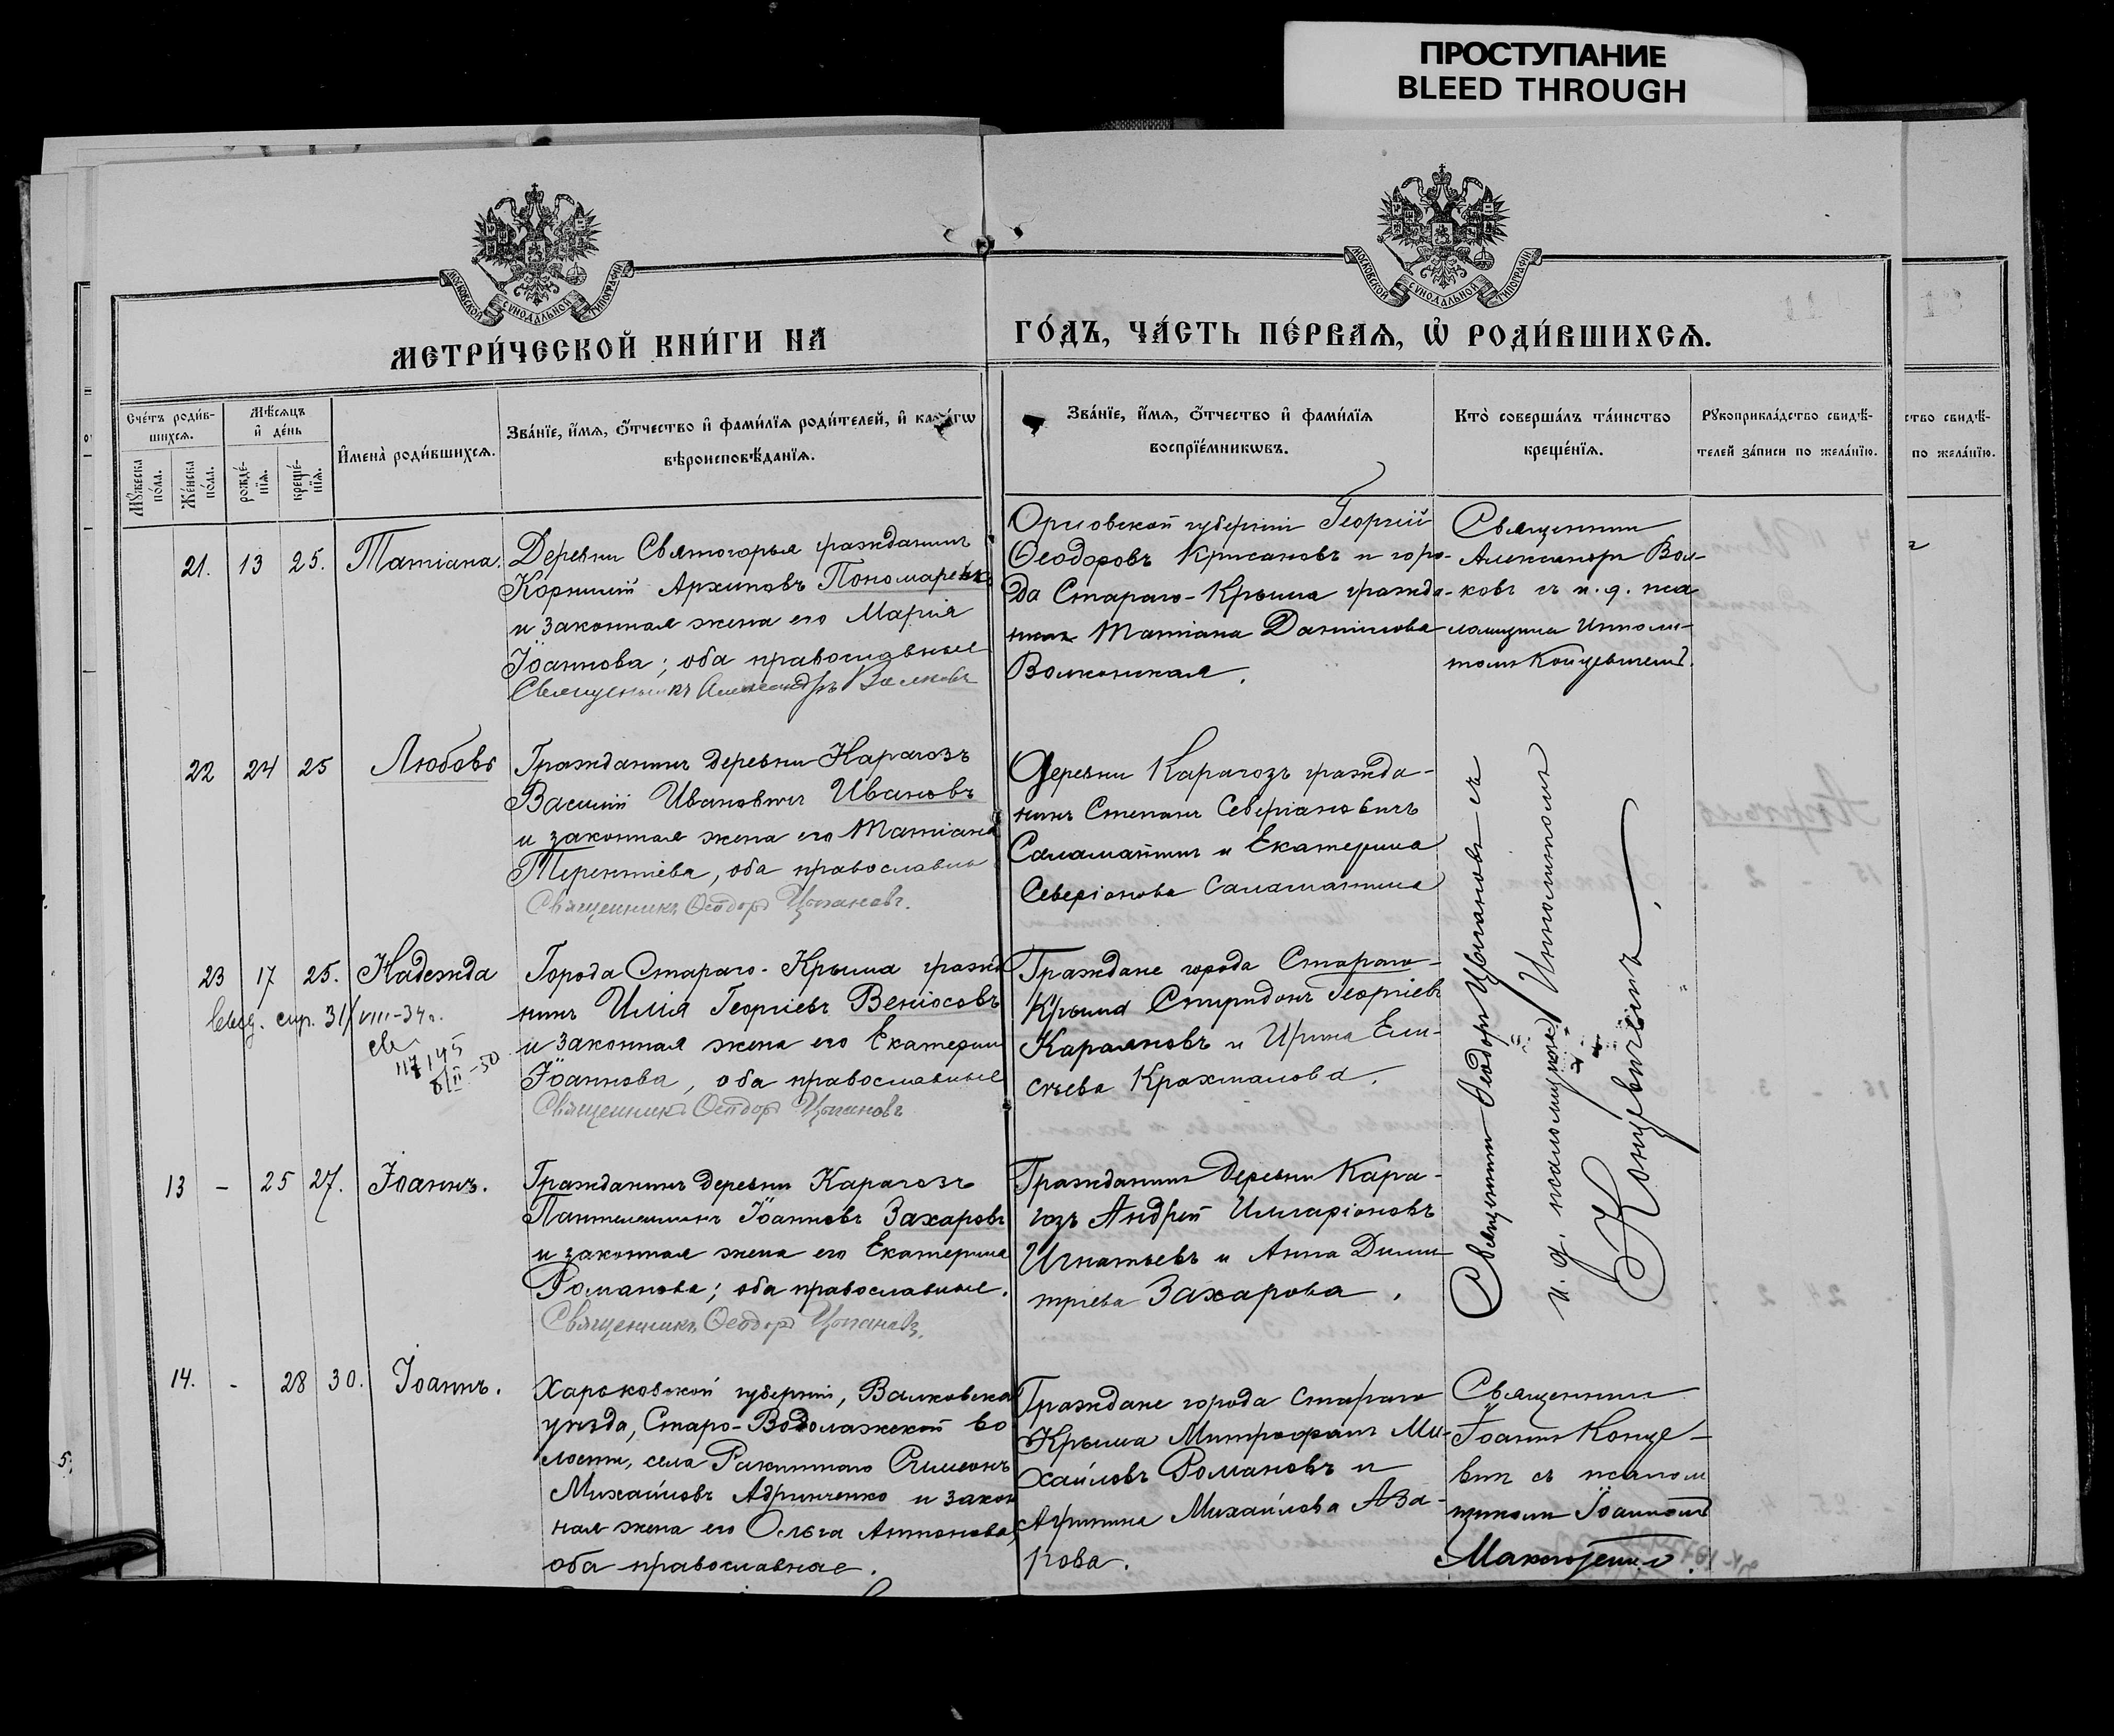 ПРОСТУПАНИЕ
BLEED THROUGH
МОСКОВСКОЙ СѴНОДАЛЬНОЙ ТИПОГРАФІИ
МОСКОВСКОЙ СѴНОДАЛЬНОЙ ТИПОГРАФІИ
МЕТРИ́ЧЕСКОЙ КНИ́ГИ НА
ГО́ДЪ, ЧА́СТЬ ПЕ́РВАѦ, Ѡ҆ РОДИ́ВШИХСѦ.
Сче́тъ роди́в-
шихсѧ.
Мꙋ́жеска по́ла.
Же́нска по́ла.
Мѣ́сѧцъ
и҆ де́нь
рожде́-
нїѧ.
креще́-
нїѧ.
И҆мена̀ роди́вшихсѧ.
Зва́нїе, и҆́мѧ, ѻ҆́тчество и҆ фами́лїѧ роди́телей, и҆ како́гѡ
вѣроисповѣ́данїѧ.
Зва́нїе, и҆́мѧ, ѻ҆́тчество и҆ фами́лїѧ
воспрїе́мникѡвъ.
Кто̀ соверша́лъ та́инство
креще́нїѧ.
Рꙋкоприкла́дство свидѣ́-
телей за́писи по жела́нїю.
ство свидѣ́-
по жела́нїю.
21. 13 25. Татіана.
Деревни Святогорья гражданинъ
Корнилій Архиповъ Пономаренко
и законная жена его Марія
Іоаннова; оба православные
Священникъ Александръ Волковъ
Орловской губерніи Георгій
Ѳеодоровъ Крисановъ и горо-
да Стараго-Крыма гражда-
Татіана Даниилова
Волконская.
Священникъ
Александръ Вол-
ковъ съ и. д. пса
ломщика Ипполи-
томъ Концевичемъ.
22 24 25 Любовь
Гражданинъ деревни Карагозъ
Василій Ивановичъ Ивановъ
и законная жена его Татіана
Терентіева, оба православны
Священникъ Ѳеодоръ Цыгановъ.
Деревни Карагозъ гражда-
нинъ Степанъ Северіановичъ
Саламатинъ и Екатерина
Северіонова Саламатина
23 17 25. Надежда
выд. спр. 31/VIII-34 г.
св
Города Стараго-Крыма гражд
нинъ Илія Георгіевъ Веніосовъ
и законная жена его Екатерин
Іоаннова, оба православные
Священникъ Ѳеодоръ Цыгановъ
Граждане города Стараго-
Крыма Спиридонъ Георгіевъ
Караяновъ и Ирина Ели-
сѣева Крахмалова.
Священникъ Ѳеодоръ Цыгановъ съ
и. д. псаломщика Ипполитомъ
Концевичемъ.
13 - 25 27. Іоаннъ.
Гражданинъ деревни Карагозъ
Пантелеимонъ Іоанновъ Захаровъ
и законная жена его Екатерина
Романова; оба православные.
Священникъ Ѳеодоръ Цыгановъ.
Гражданинъ деревни Кара-
гозъ Андрей Илларіоновъ
Игнатьевъ и Анна Дими
тріева Захарова.
14. - 28 30. Іоаннъ.
Харьковской губерніи, Валковска
уѣзда, Старо-Водолажской во
лости, села Ракитнаго Симеонъ
Михайловъ Адринченко и закон
ная жена его Ольга Антонова,
оба православные.
Граждане города Стараго
Крыма Митрофанъ Ми-
хайловъ Романовъ и
Агрипина Михайлова Аза-
рова.
Священникъ
Іоаннъ Конце-
вичъ съ псалом
щикомъ Іоанномъ